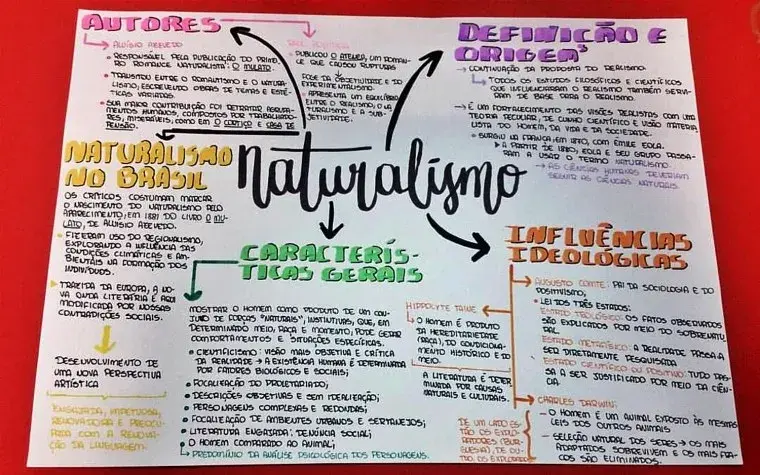 AUTORES
ALUÍSIO AZEVEDO
• RESPONSÁVEL PELA PUBLICAÇÃO DO PRIMEI
RO ROMANCE NATURALISTA: O MULATO.
• TRANSITOU ENTRE O ROMANTISMO E O NATURA
LISMO, ESCREVENDO OBRAS DE TEMAS E ESTÉTI
CAS VARIADAS.
• SUA MAIOR CONTRIBUIÇÃO FOI RETRATAR AGRUPA
MENTOS HUMANOS, COMPOSTOS POR TRABALHADO
RES, MISERÁVEIS, COMO EM O CORTIÇO E CASA DE
PENSÃO.
RAUL POMPEIA
• PUBLICOU O ATENEU, UM ROMAN
CE QUE CAUSOU RUPTURAS
FOGE DA OBJETIVIDADE E DO
EXPERIMENTALISMO.
• APRESENTA UM EQUILÍBRIO
ENTRE O REALISMO, O NA
TURALISMO E A SUB
JETIVIDADE.
DEFINIÇÃO E
ORIGEM
CONTINUAÇÃO DA PROPOSTA DO REALISMO.
TODOS OS ESTUDOS FILOSÓFICOS E CIENTÍFICOS
QUE INFLUENCIARAM O REALISMO TAMBÉM SERVI
RAM DE BASE PARA O REALISMO.
É UM FORTALECIMENTO DAS VISÕES REALISTAS COM UMA
TEORIA PECULIAR, DE CUNHO CIENTÍFICO E VISÃO MATERIA
LISTA DO HOMEM, DA VIDA E DA SOCIEDADE.
• SURGIU NA FRANÇA, EM 1870, COM ÉMILE ZOLA.
A PARTIR DE 1880, ZOLA E SEU GRUPO PASSA
RAM A USAR O TERMO NATURALISMO
AS CIÊNCIAS HUMANAS DEVERIAM
SEGUIR AS CIÊNCIAS NATURAIS.
naturalismo
NATURALISMO
NO BRASIL
OS CRÍTICOS COSTUMAM MARCAR
O NASCIMENTO DO NATURALISMO PELO
APARECIMENTO, EM 1881 DO LIVRO O MU
LATO, DE ALUÍSIO AZEVEDO.
• FIZERAM USO DO REGIONALISMO,
EXPLORANDO A INFLUÊNCIA DAS
CONDIÇÕES CLIMÁTICAS E AM
BIENTAIS NA FORMAÇÃO DOS
INDIVÍDUOS.
• TRAZIDA DA EUROPA, A NO
VA ONDA LITERÁRIA É AQUI
MODIFICADA POR NOSSAS
CONTRADIÇÕES SOCIAIS.
DESENVOLVIMENTO DE
UMA NOVA PERSPECTIVA
ARTÍSTICA
ENGAJADA, IMPETUOSA,
RENOVADORA E PREOCU
PADA COM A RENOVA
ÇÃO DA LINGUAGEM.
CARACTERÍS-
TICAS GERAIS
MOSTRAR O HOMEM COMO PRODUTO DE UM CON
JUNTO DE FORÇAS "NATURAIS", INSTINTIVAS, QUE, EM
DETERMINADO MEIO, RAÇA E MOMENTO, PODE GERAR
COMPORTAMENTOS E SITUAÇÕES ESPECÍFICAS.
• CIENTIFICISMO: VISÃO MAIS OBJETIVA E CRÍTICA
DA REALIDADE → A EXISTÊNCIA HUMANA É DETERMINADA
POR FATORES BIOLÓGICOS E SOCIAIS;
• FOCALIZAÇÃO DO PROLETARIADO;
• DESCRIÇÕES OBJETIVAS E SEM IDEALIZAÇÃO;
• PERSONAGENS COMPLEXAS E REDONDAS;
• FOCALIZAÇÃO DE AMBIENTES URBANOS E SERTANEJOS;
• LITERATURA ENGAJADA: DENÚNCIA SOCIAL;
• O HOMEM COMPARADO AO ANIMAL;
PREDOMÍNIO DA ANÁLISE PSICOLÓGICA DOS PERSONAGENS.
INFLUÊNCIAS
IDEOLÓGICAS
HIPPOLYTE TAINE
O HOMEM É PRODUTO
DA HEREDITARIEDADE
(RAÇA), DO CONDICIONA
MENTO HISTÓRICO E DO
MEIO.
A LITERATURA É DETER
MINADA POR CAUSAS
NATURAIS E CULTURAIS.
AUGUSTO COMTE: PAI DA SOCIOLOGIA E DO
POSITIVISMO,
• LEI DOS TRÊS ESTADOS:
ESTADO TEOLÓGICO: OS FATOS OBSERVADOS
SÃO EXPLICADOS POR MEIO DO SOBRENATU
RAL.
ESTADO METAFÍSICO: A REALIDADE PASSA A
SER DIRETAMENTE PESQUISADA
ESTADO CIENTÍFICO OU POSITIVO: TUDO PAS
SA A SER JUSTIFICADO POR MEIO DA CIÊN
CIA.
CHARLES DARWIN:
O HOMEM É UM ANIMAL EXPOSTO ÀS MESMAS
LEIS DOS OUTROS ANIMAIS
SELEÇÃO NATURAL DOS SERES → OS MAIS
ADAPTADOS SOBREVIVEM E OS MAIS FRA
COS SÃO ELIMINADOS.
DE UM LADO ES
TÃO OS EXPLO
RADORES (BUR
GUESIA), DE OU
TRO, OS EXPLORADOS